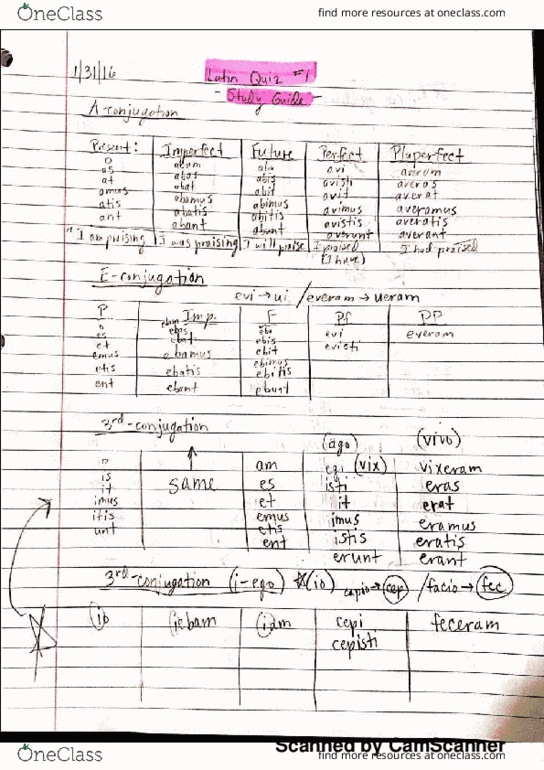 OneClass find more resources at oneclass.com
1/31/16 Latin Quiz #1
- Study Guide -
A-conjugation
Present: Imperfect Future Perfect Pluperfect
o abam abo avi averam
as abas abis avisti averas
at abat abit avit averat
amus abamus abimus avimus averamus
atis abatis abitis avistis averatis
ant abant abunt averunt averant
"I am praising I was praising I will praise I praised I had praised
(I have)
E-conjugation
evi → ui / everam → ueram
P. Imp. F Pf PP
o ebam ebo evi everam
es ebas ebis evisti
et ebat ebit
emus ebamus ebimus
etis ebatis ebitis
ent ebant ebunt
3rd-conjugation
(ago) (vivo)
o same am egi (vix) vixeram
is es isti eras
it et it erat
imus emus imus eramus
itis etis istis eratis
unt ent erunt erant
3rd-conjugation (i-ego) (io) capio → cep / facio → fec
io iebam iam cepi feceram
cepisti
Scanned by CamScanner
OneClass find more resources at oneclass.com